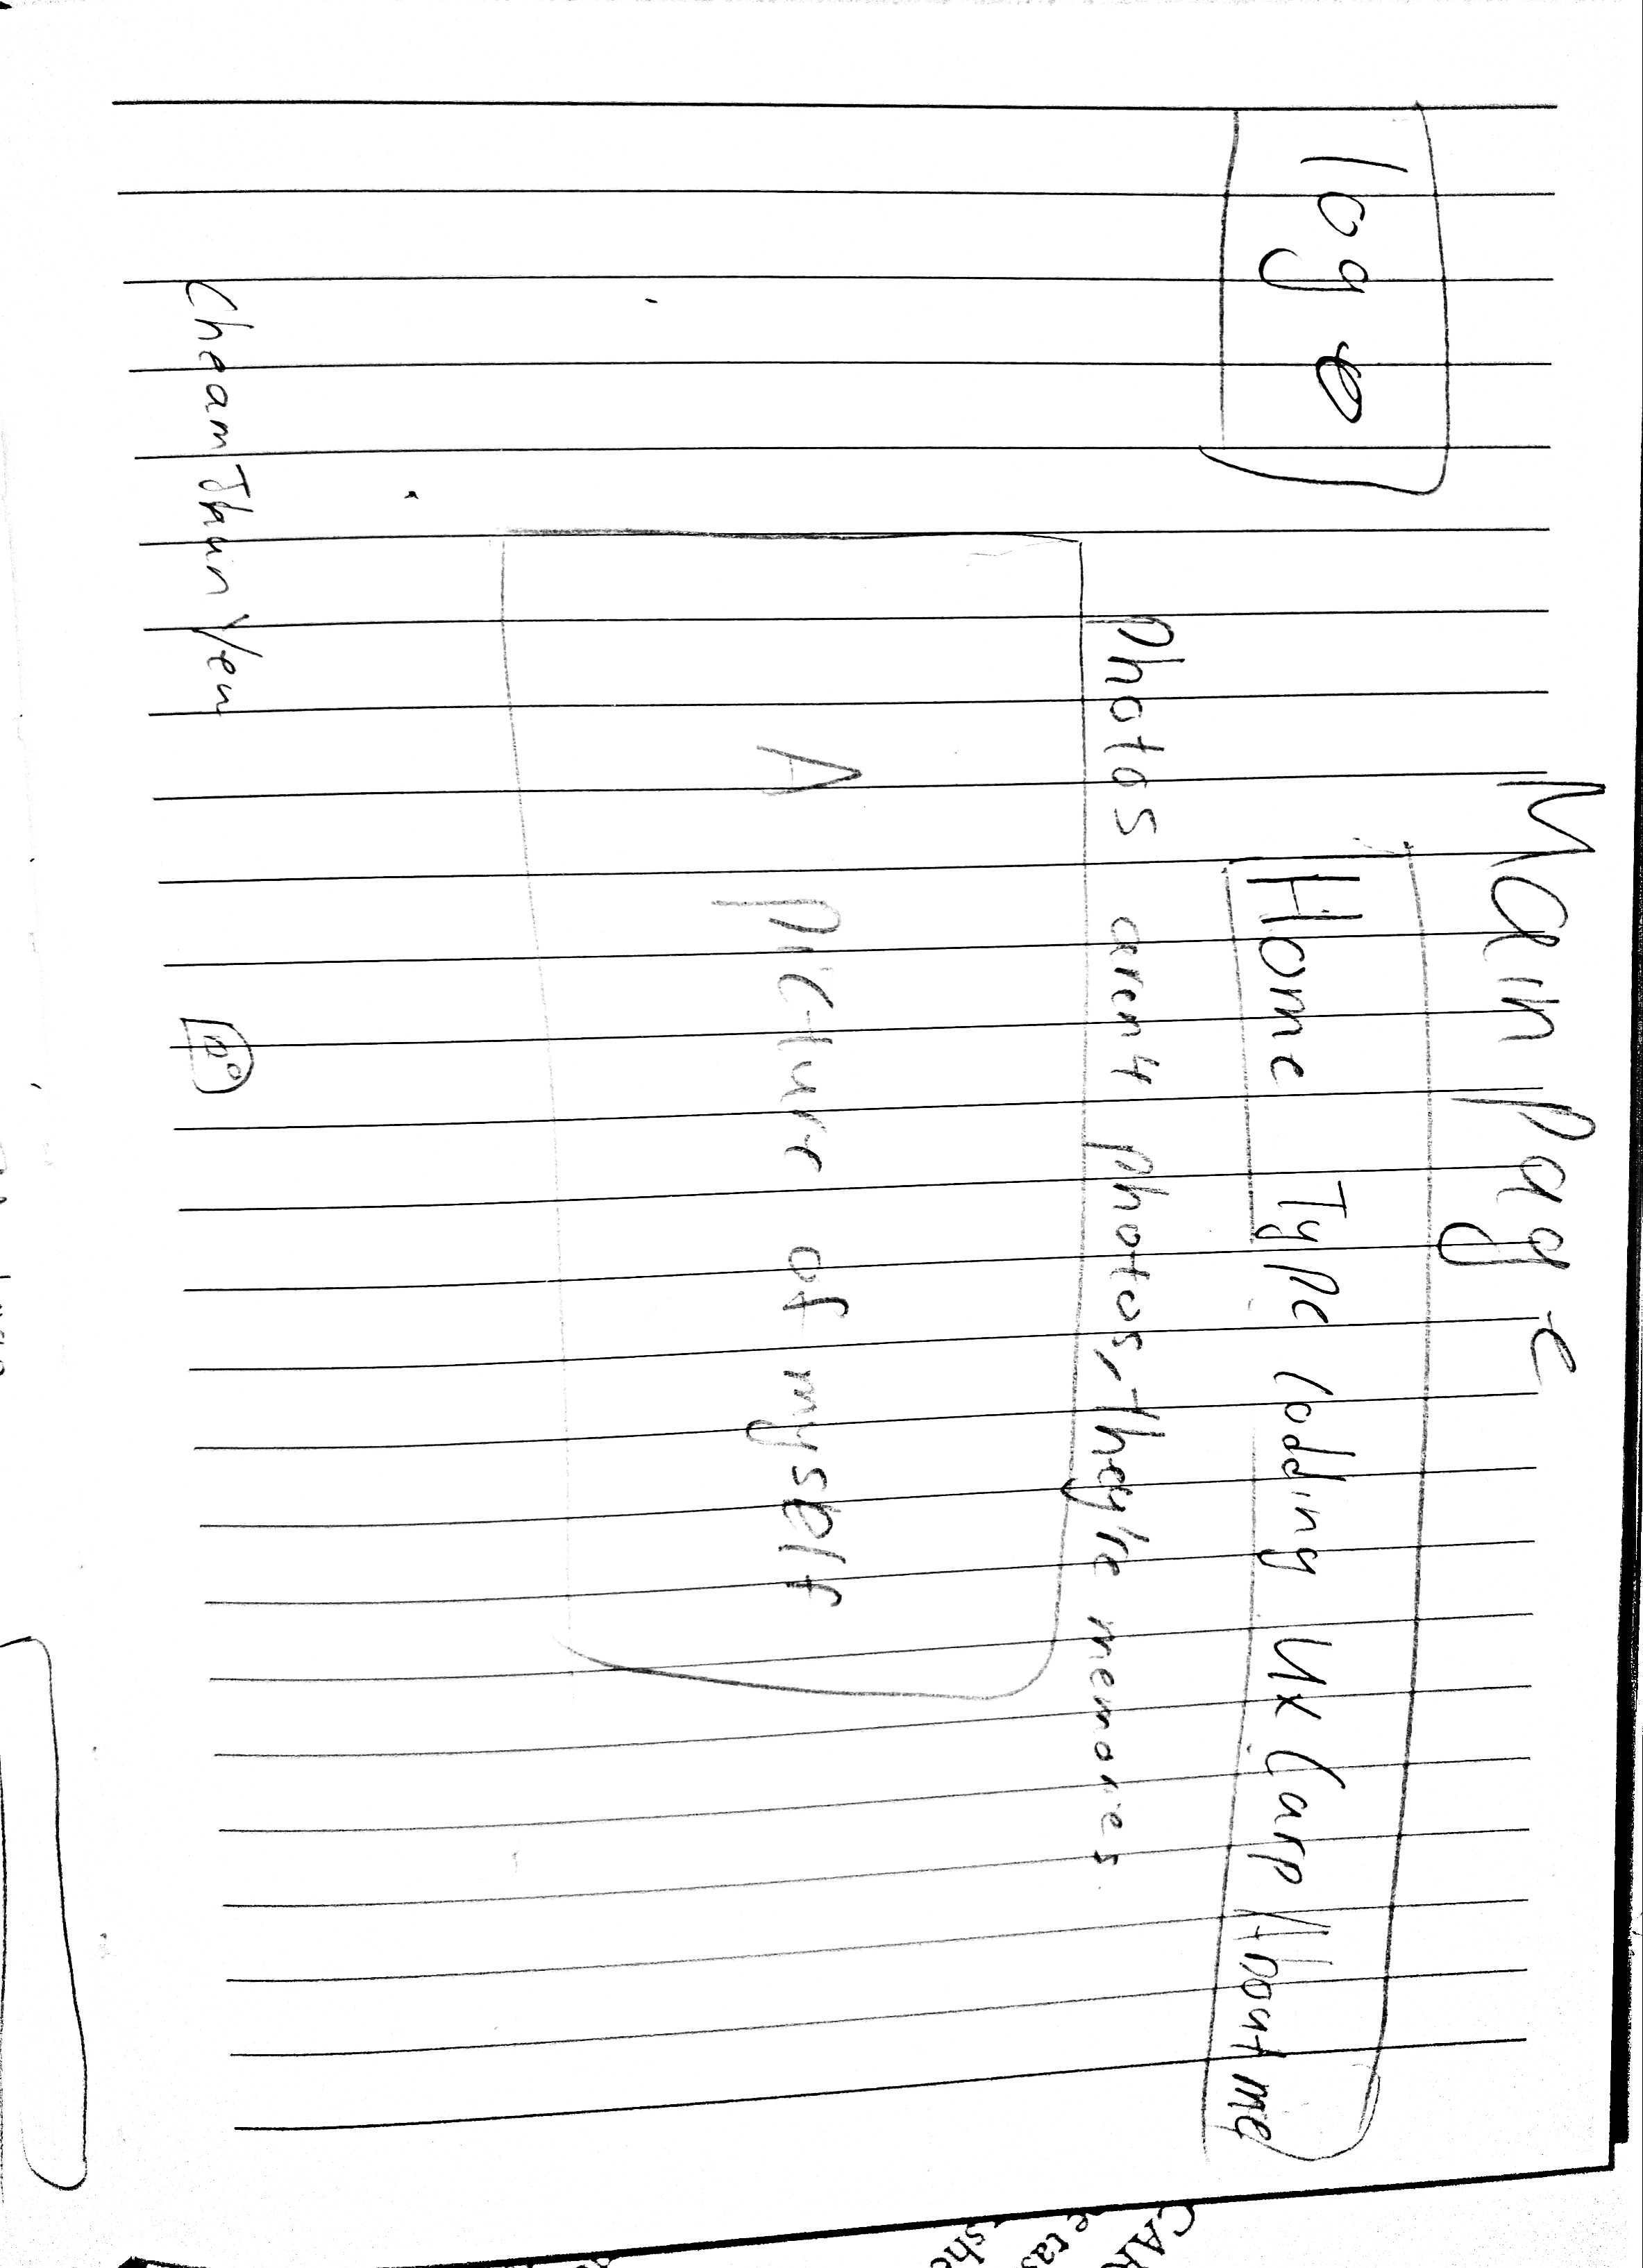 Main page
logo
Home Type Codding Ux Carp About me
Photos aren't photos, they're memories.
A picture of myself
Cheam Jhun Yew
CAR
e tas
she